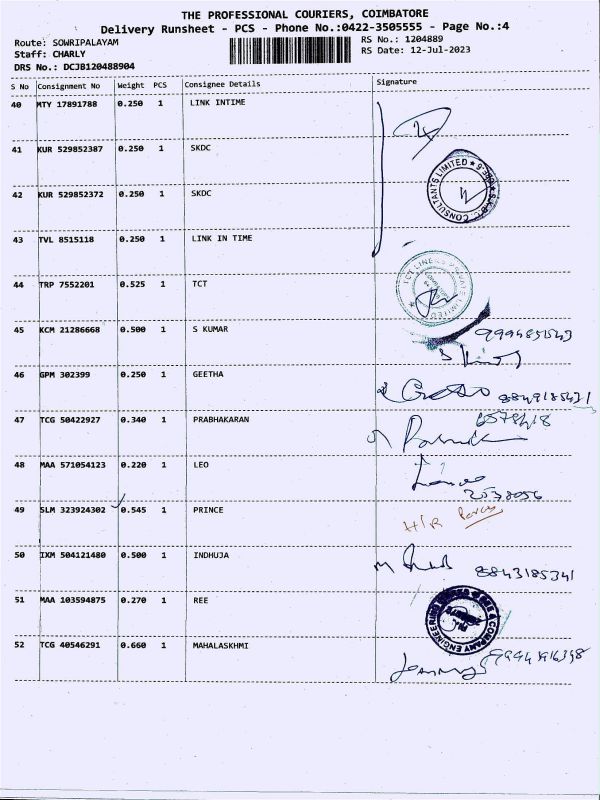 THE PROFESSIONAL COURIERS, COIMBATORE
Delivery Runsheet - PCS - Phone No.:0422-3505555 - Page No.:4
Route: SOWRIPALAYAM
RS No.: 1204889
Staff: CHARLY
RS Date: 12-Jul-2023
DRS No.: DCJB120488904
S No Consignment No Weight PCS Consignee Details Signature
40 MTY 17891788 0.250 1 LINK INTIME
41 KUR 529852387 0.250 1 SKDC
CONSULTANTS LIMITED
42 KUR 529852372 0.250 1 SKDC
43 TVL 8515118 0.250 1 LINK IN TIME
44 TRP 7552201 0.525 1 TCT
45 KCM 21286668 0.500 1 S KUMAR
46 GPM 302399 0.250 1 GEETHA
47 TCG 50422927 0.340 1 PRABHAKARAN
48 MAA 571054123 0.220 1 LEO
49 SLM 323924302 0.545 1 PRINCE
50 IXM 504121480 0.500 1 INDHUJA
8843185341
51 MAA 103594875 0.270 1 REE
52 TCG 40546291 0.660 1 MAHALASKHMI